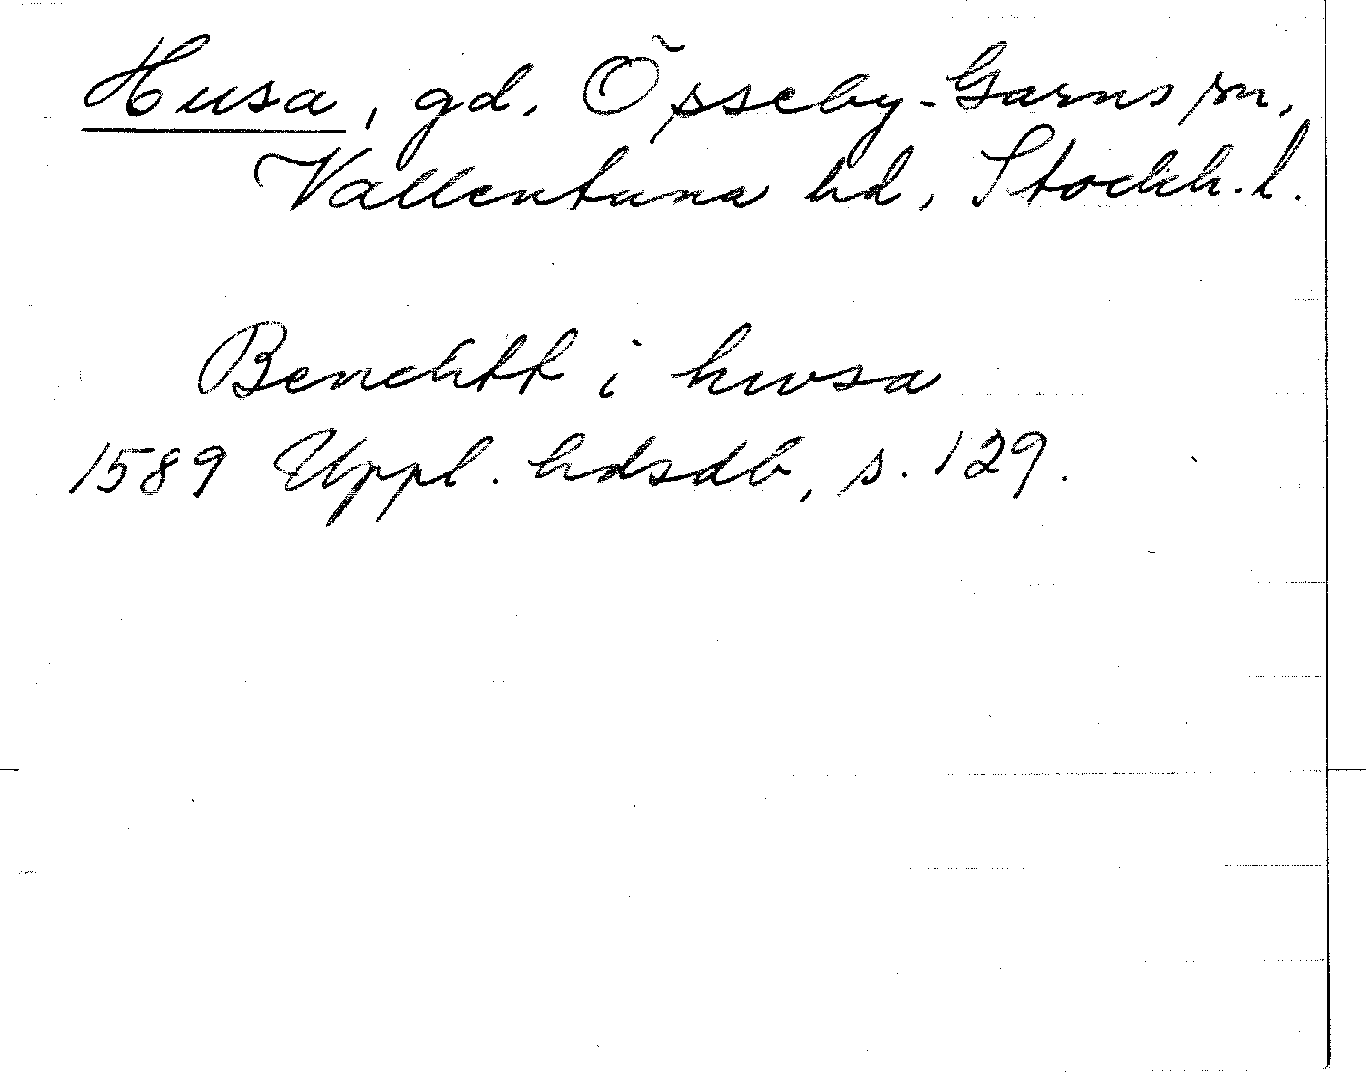 Husa, gd. Össeby-Garns sn,
Vallentuna hd, Stockh. l.
Benchtt i hwsa
1589 Uppl. hdsdb, s. 129.